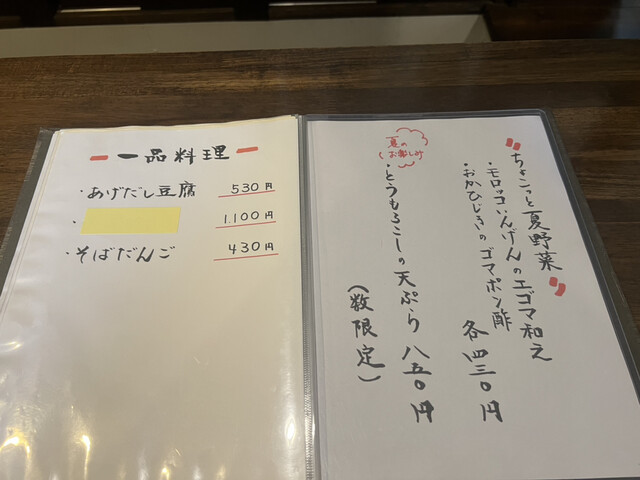 一品料理
・あげだし豆腐 530円
・ 1.100円
・そばだんご 430円
"ちょこっと夏野菜"
・モロッコいんげんのエゴマ和え
・おかひじきのゴマポン酢
各四三〇円
夏の
お楽しみ
・とうもろこしの天ぷら 八五〇円
(数限定)